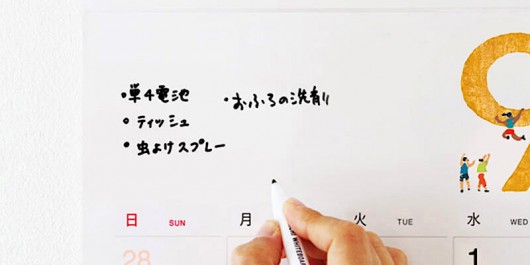 ・単4電池
・おふろの洗剤
・ティッシュ
・虫よけスプレー
9
日 SUN
月
火 TUE
水 WED
28
1
WHITEBOARD